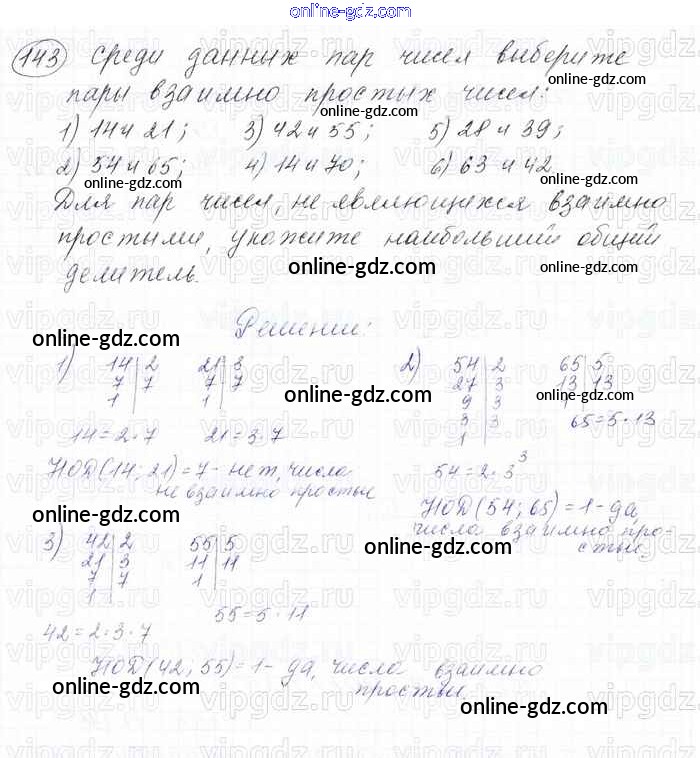 online-gdz.com
143 Среди данных пар чисел выберите
online-gdz.com
пары взаимно простых чисел:
online-gdz.com
1) 14 и 21; 3) 42 и 55; 5) 28 и 39;
online-gdz.com
2) 54 и 65; 4) 14 и 70; 6) 63 и 42
online-gdz.com online-gdz.com
Для пар чисел, не являющихся взаимно
простыми, укажите наибольший общий
online-gdz.com
делитель.
Решение:
online-gdz.com
1) 14 | 2 21 | 3 2) 54 | 2 65 | 5
7 | 7 7 | 7 27 | 3 13 | 13
1 | 1 | 9 | 3 1 |
online-gdz.com online-gdz.com
3 | 3
1 |
14 = 2 · 7 21 = 3 · 7 65 = 5 · 13
НОД (14; 21) = 7 - нет, числа
не взаимно простые
54 = 2 · 3³
НОД (54; 65) = 1 - да,
числа взаимно про-
стые
online-gdz.com
online-gdz.com
3) 42 | 2 55 | 5
21 | 3 11 | 11
7 | 7 1 |
1 |
online-gdz.com
55 = 5 · 11
42 = 2 · 3 · 7
НОД (42; 55) = 1 - да, числа взаимно
простые
online-gdz.com
online-gdz.com
vipgdz.ru